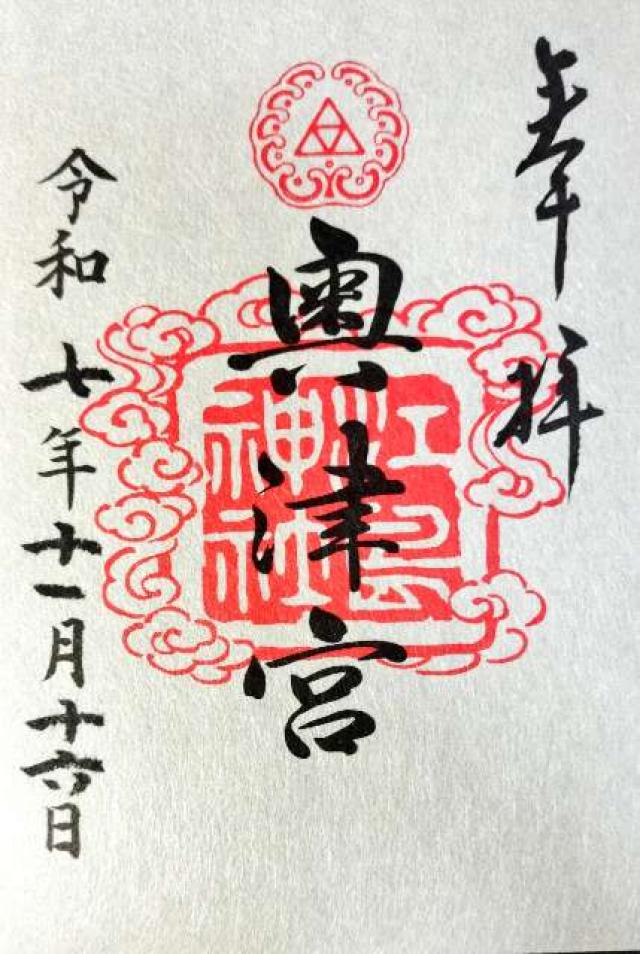 奉拝
奧津宮
江島
神社
令和七年十一月十六日